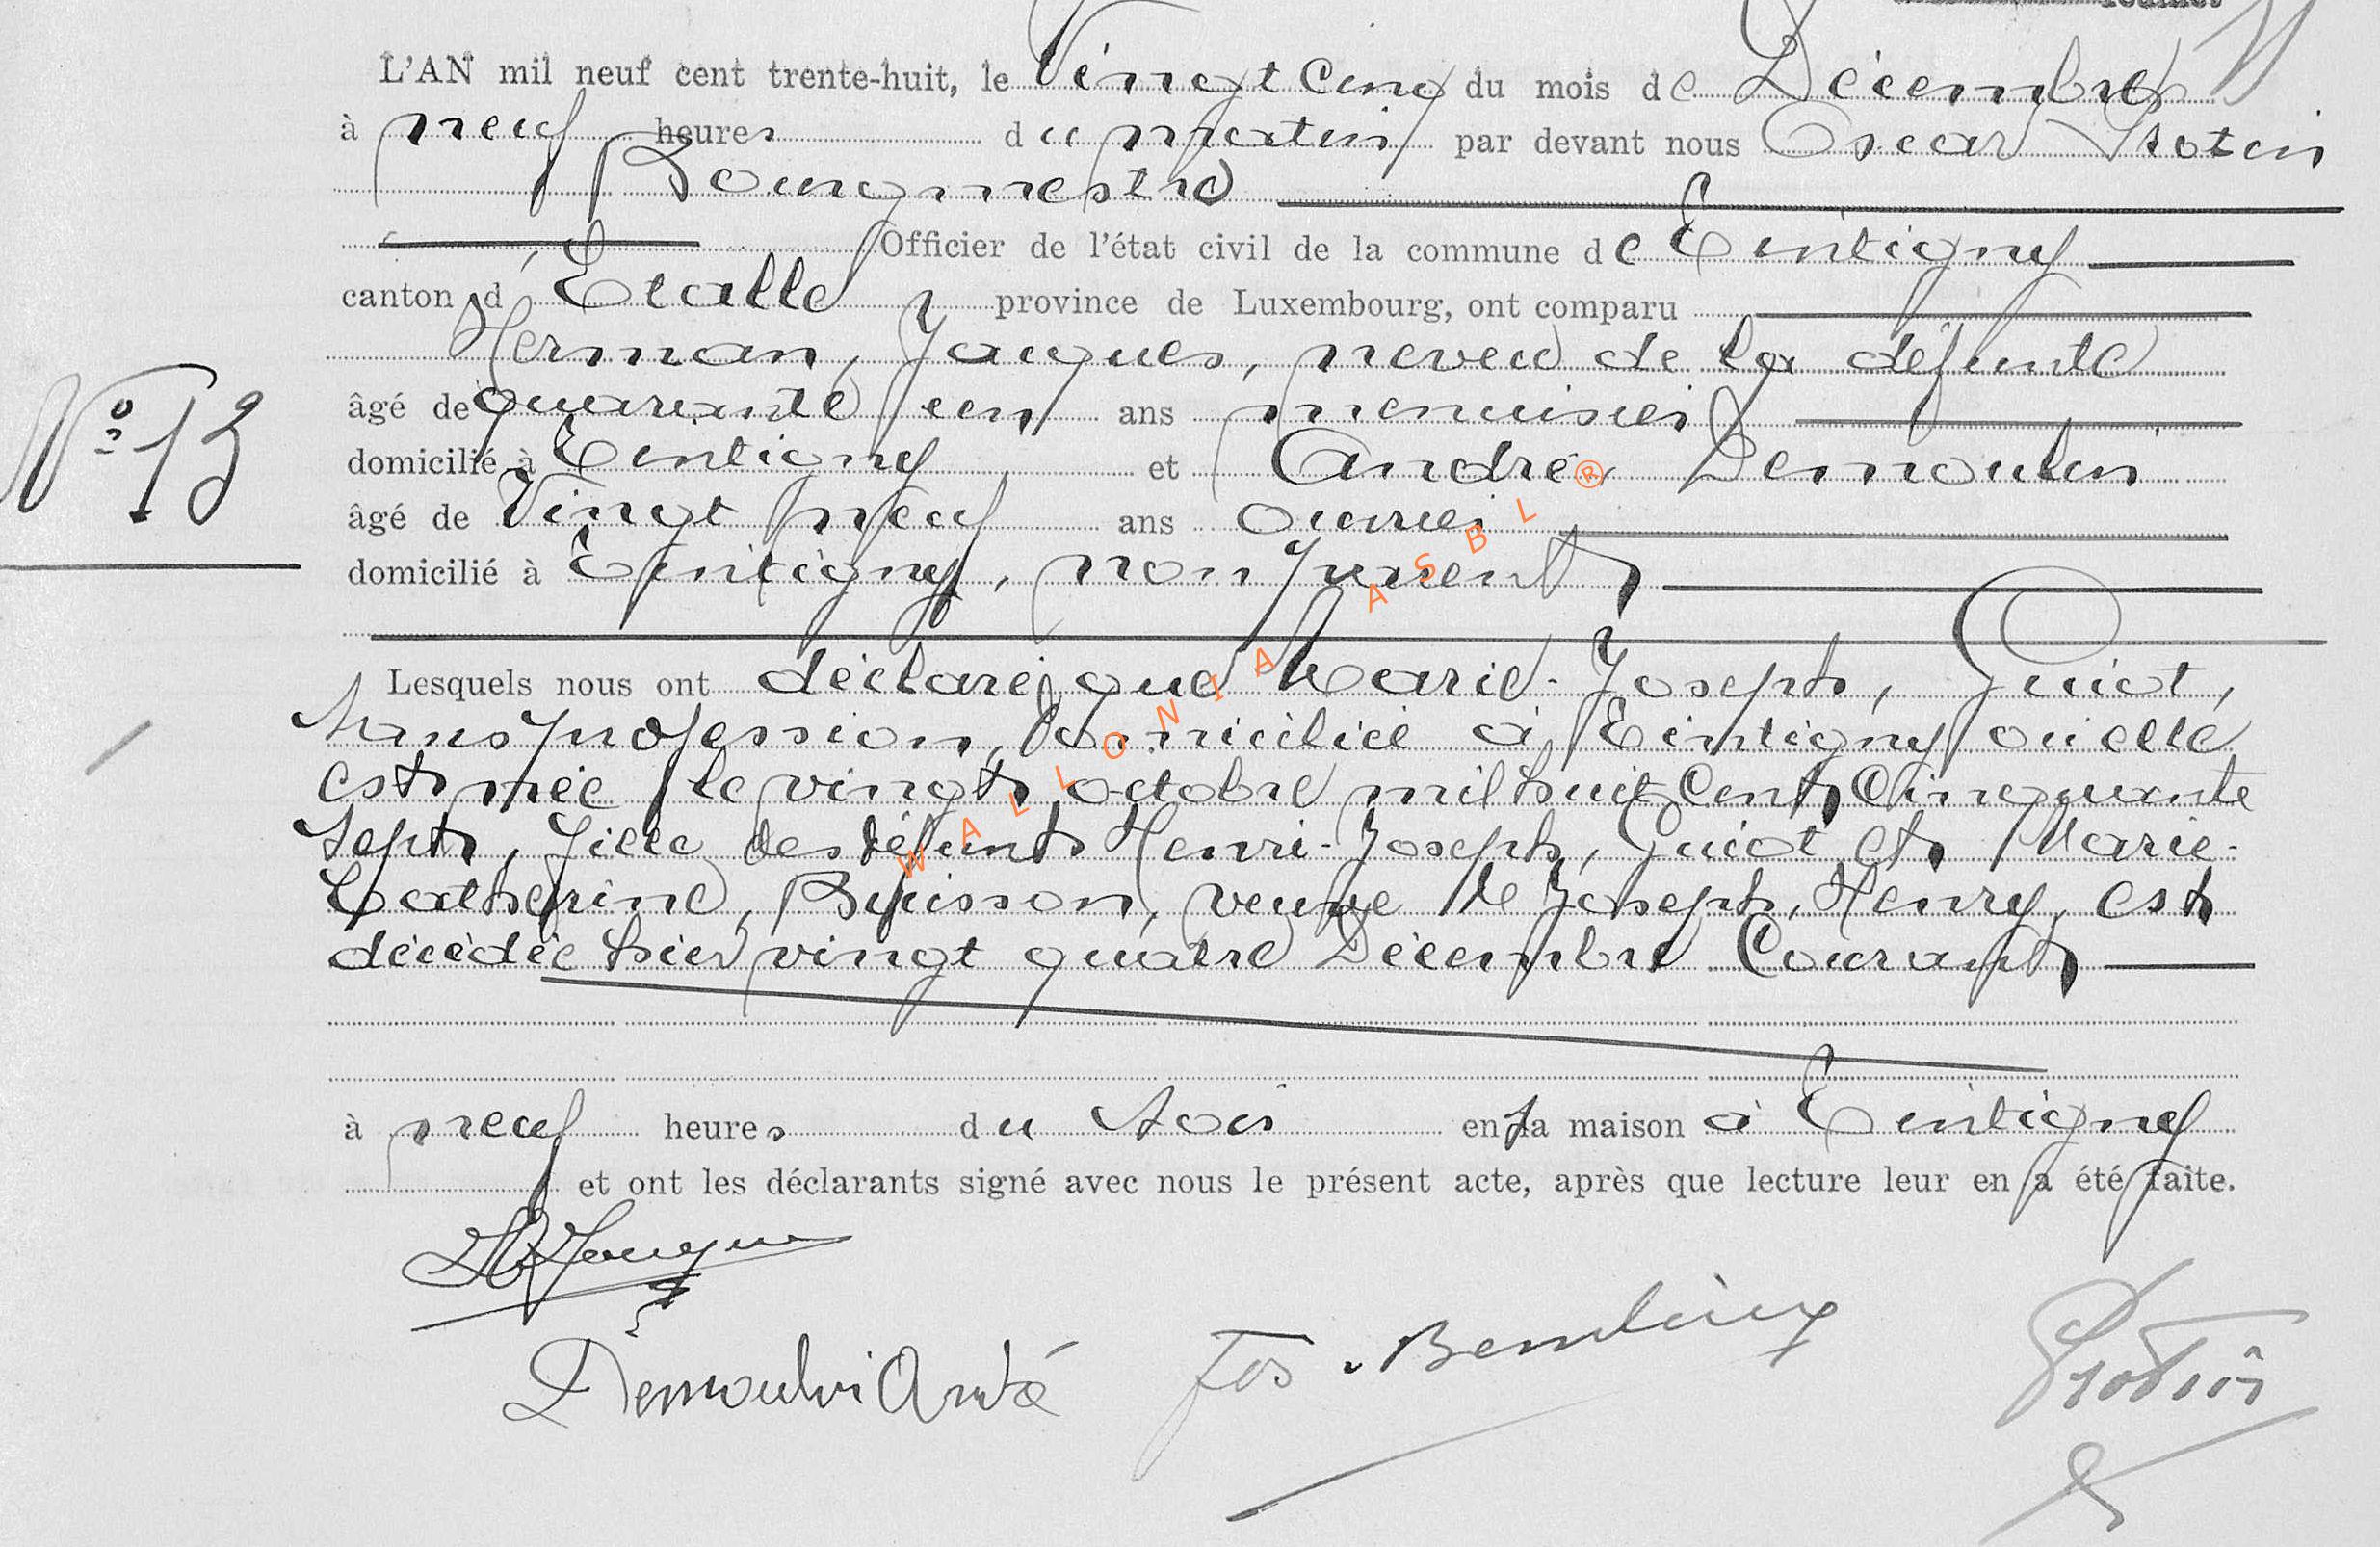 L'AN mil neuf cent trente-huit, le Vingt Cinq du mois de Décembre
à neuf heures du matin par devant nous Oscar Protin
Bourgmestre
Officier de l'état civil de la commune de Tintigny
canton d'Etalle province de Luxembourg, ont comparu
Herman, Jacques, neveu de la défunte
âgé de quarante un ans menuisier
N° 13
domicilié à Tintigny et André Demoulin
âgé de Vingt neuf ans ouvrier
domicilié à Tintigny, non parent
Lesquels nous ont déclaré que Marie-Joseph, Guiot,
sans profession, domiciliée à Tintigny où elle
est née le vingt octobre mil huit Cent Cinquante
sept, fille des défunts Henri-Joseph, Guiot et Marie-
Catherine, Buisson, veuve de Joseph, Henry, est
décédée hier vingt quatre Décembre Courant
à neuf heures du soir en sa maison à Tintigny
et ont les déclarants signé avec nous le présent acte, après que lecture leur en a été faite.
Jacques
Demoulin André Jos. Protin
WALLONIA ASBL ®